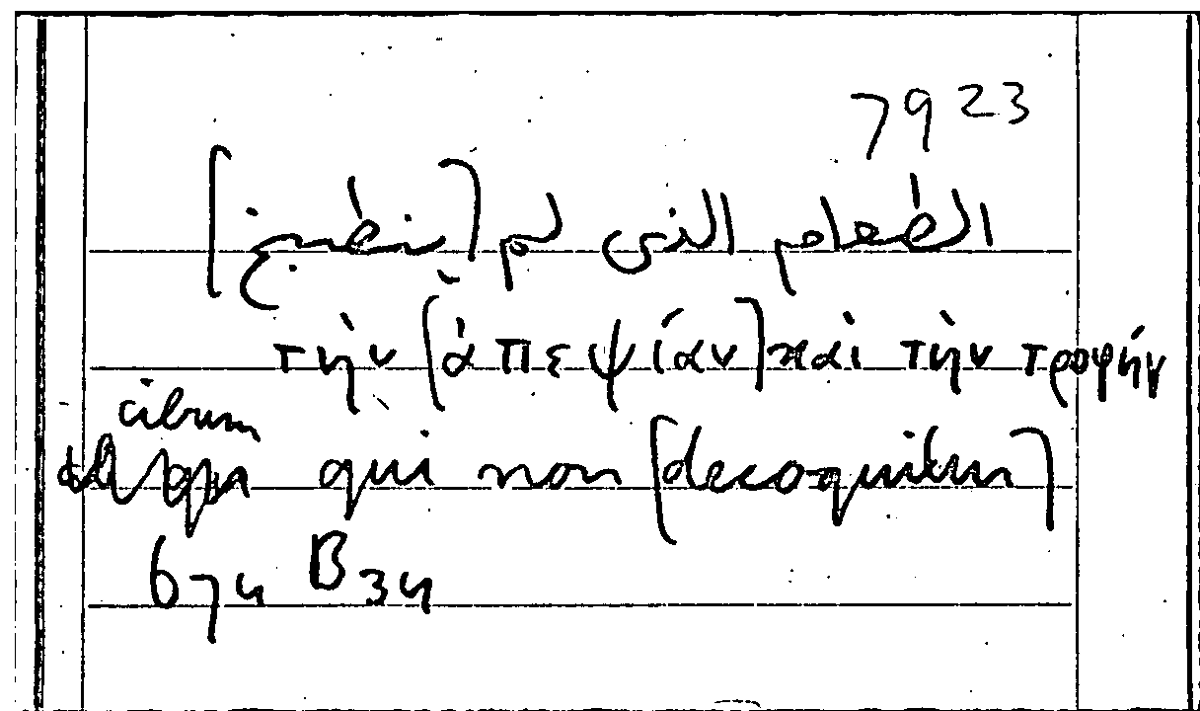 7923
الطعام الذى لم [ينطبخ]
τὴν [ἀπεψίαν] καὶ τὴν τροφήν
cibum
qui non [decoquitur]
674 B 34